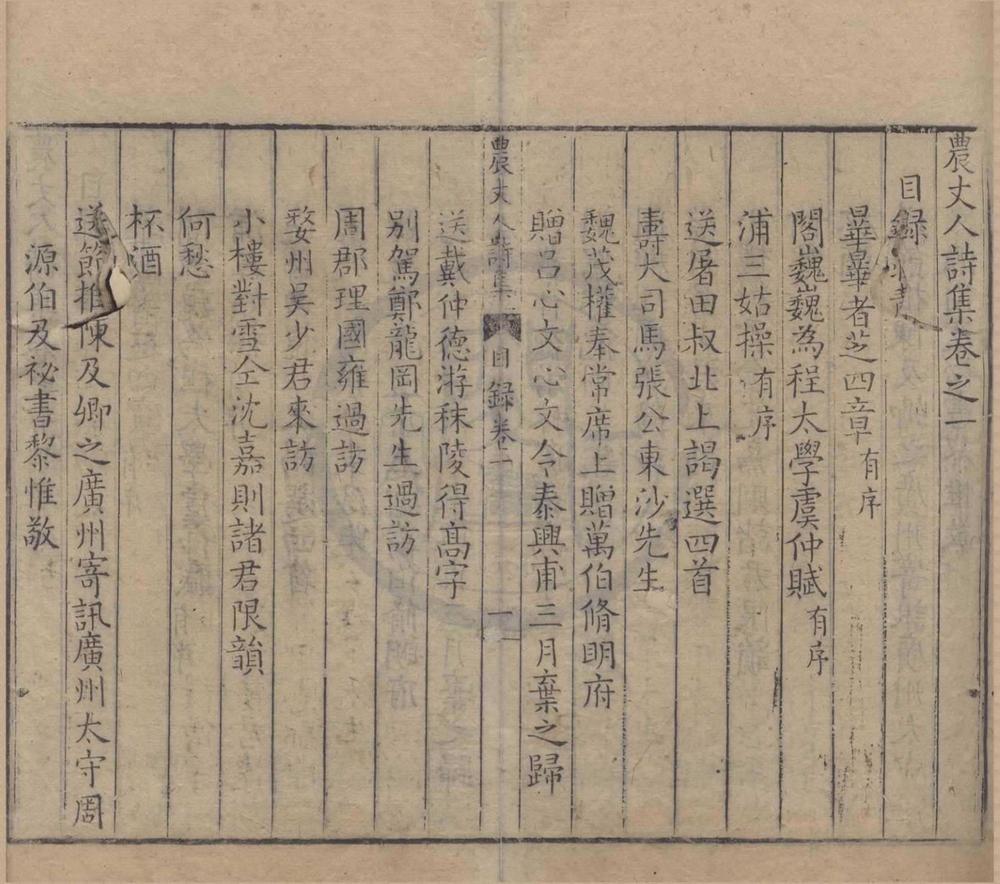 農丈人詩集卷之二
目録
曅曅者芝四章有序
閣巍巍為程太學虞仲賦有序
浦三姑操有序
送屠田叔北上謁選四首
壽大司馬張公東沙先生
魏茂權奉常席上贈萬伯脩明府
贈呂心文心文令泰興甫三月棄之歸
農丈人詩集 目録卷二 一
送戴仲德游秣陵得高字
別駕鄭龍岡先生過訪
周郡理國雍過訪
婺州吴少君來訪
小樓對雪仝沈嘉則諸君限韻
何愁
杯酒
送節推陳及卿之廣州寄訊廣州太守周
源伯及祕書黎惟敬